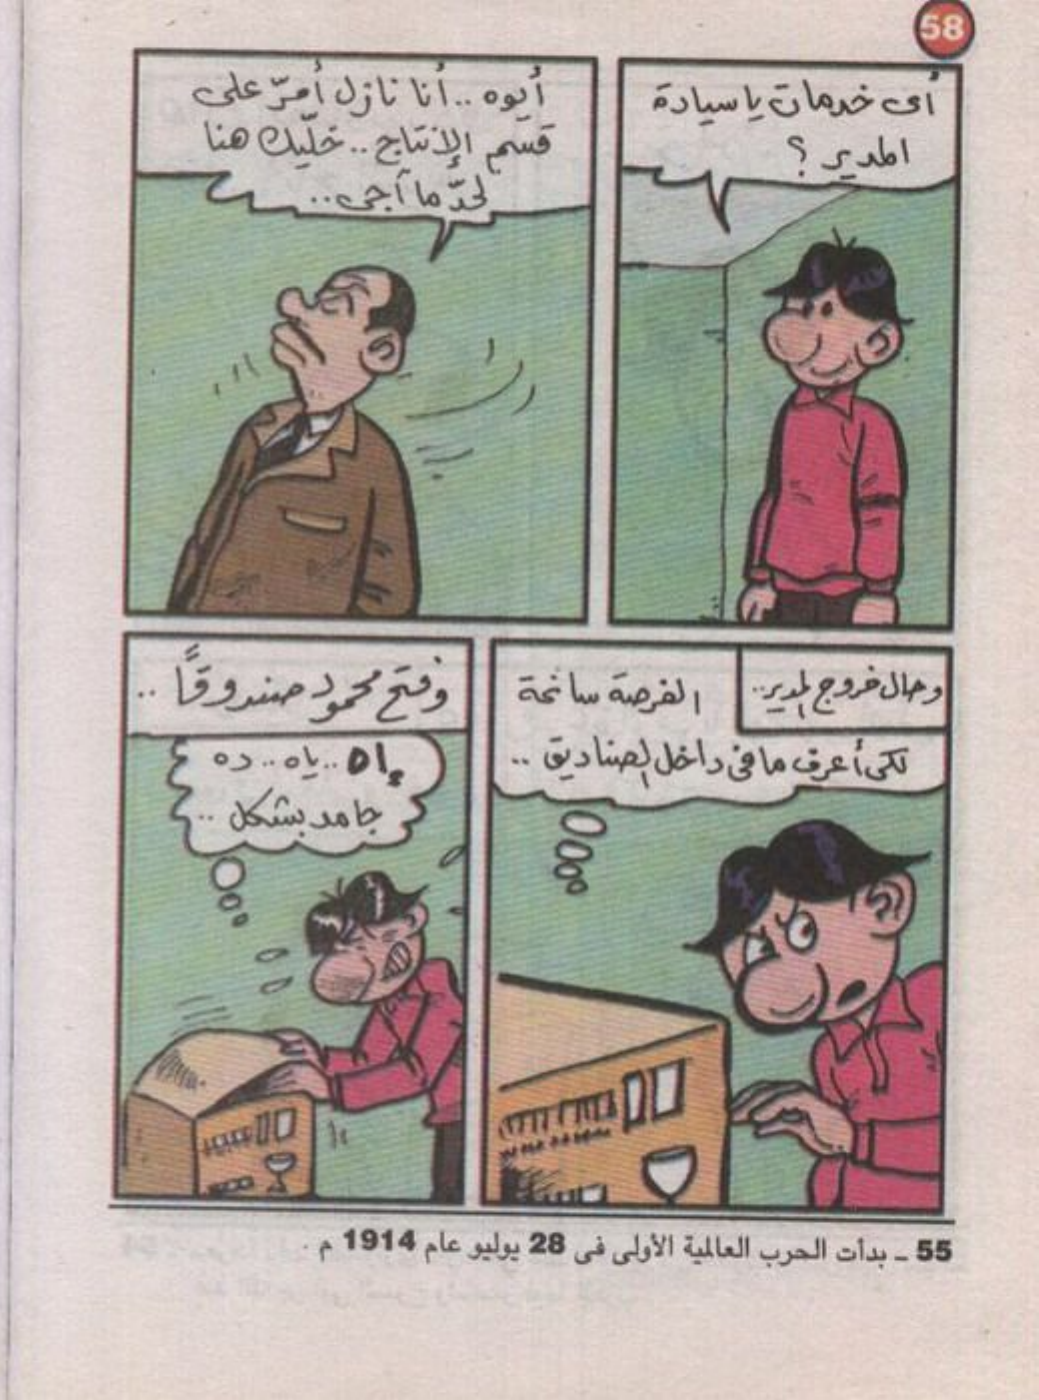 58
أى خدمات ياسيادة
المدير ؟
أيوه .. أنا نازل أمرّ على
قسم الإنتاج .. خلّيك هنا
لحدّ ما آجى ..
وحال خروج المدير ..
الفرصة سانحة
لكى أعرف ما فى داخل الصناديق ..
وفتح محمود صندوقًا ..
إاه .. ياه .. ده
جامد بشكل ..
55 ــ بدأت الحرب العالمية الأولى فى 28 يوليو عام 1914 م .